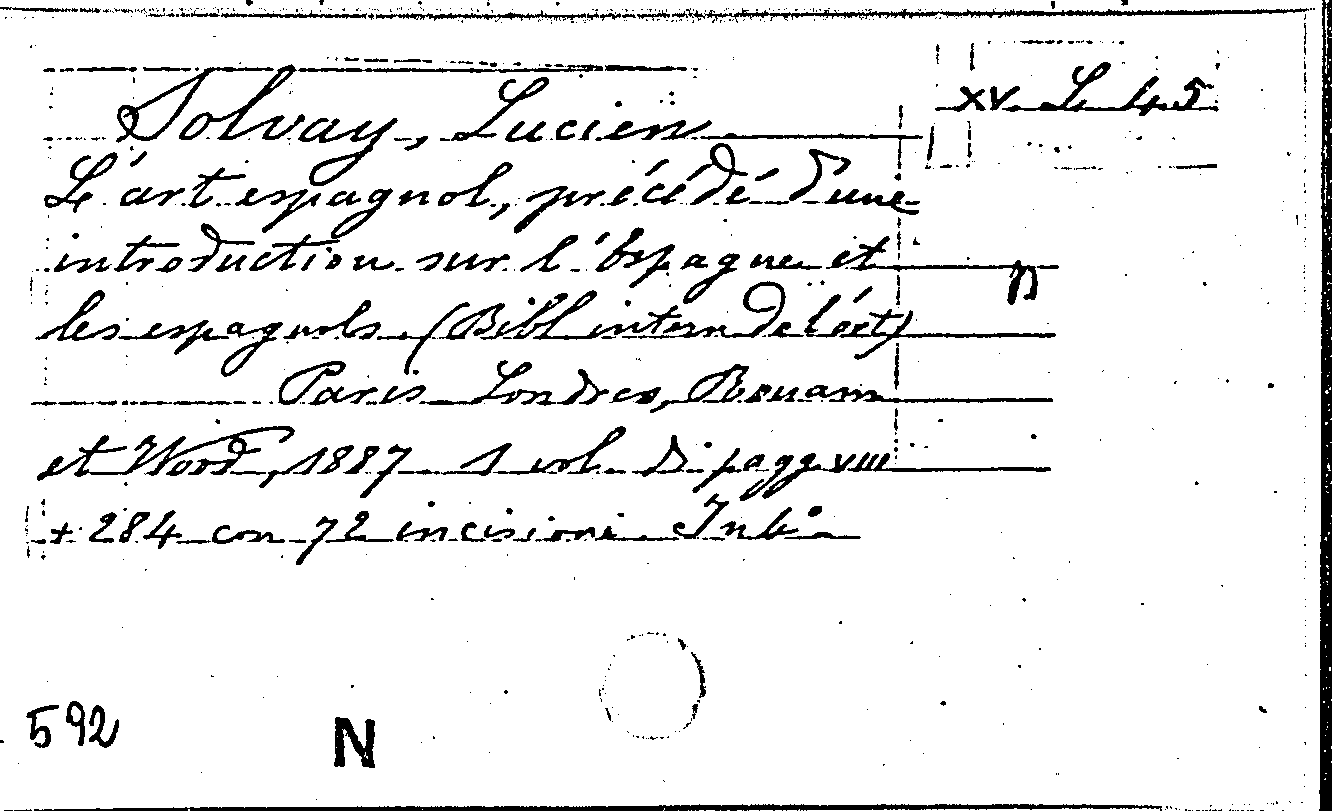 Solvay, Lucien
XV. L. 45
L'art espagnol, précédé d'une
introduction sur l'Espagne et
les espagnols. (Bibl intern de l'art)
Paris Londres, Rouam
et Wood, 1887 1 vol. di pagg VIII
+ 284 con 72 incisioni.
592
N